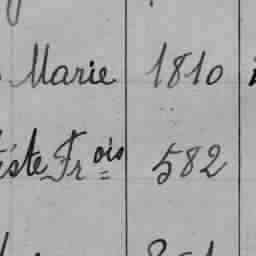 Marie 1810
éste Frois 582